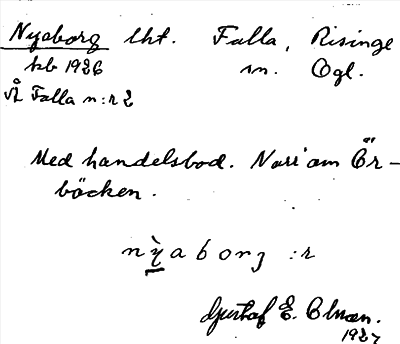 Nyaborg lht. Falla, Risinge
kb 1926 sn. Ögl.
Å Falla n:r 2
Med handelsbod. Norr om Ör-
bäcken.
nỳaborg :r
Gustaf E. Olsson.
1927